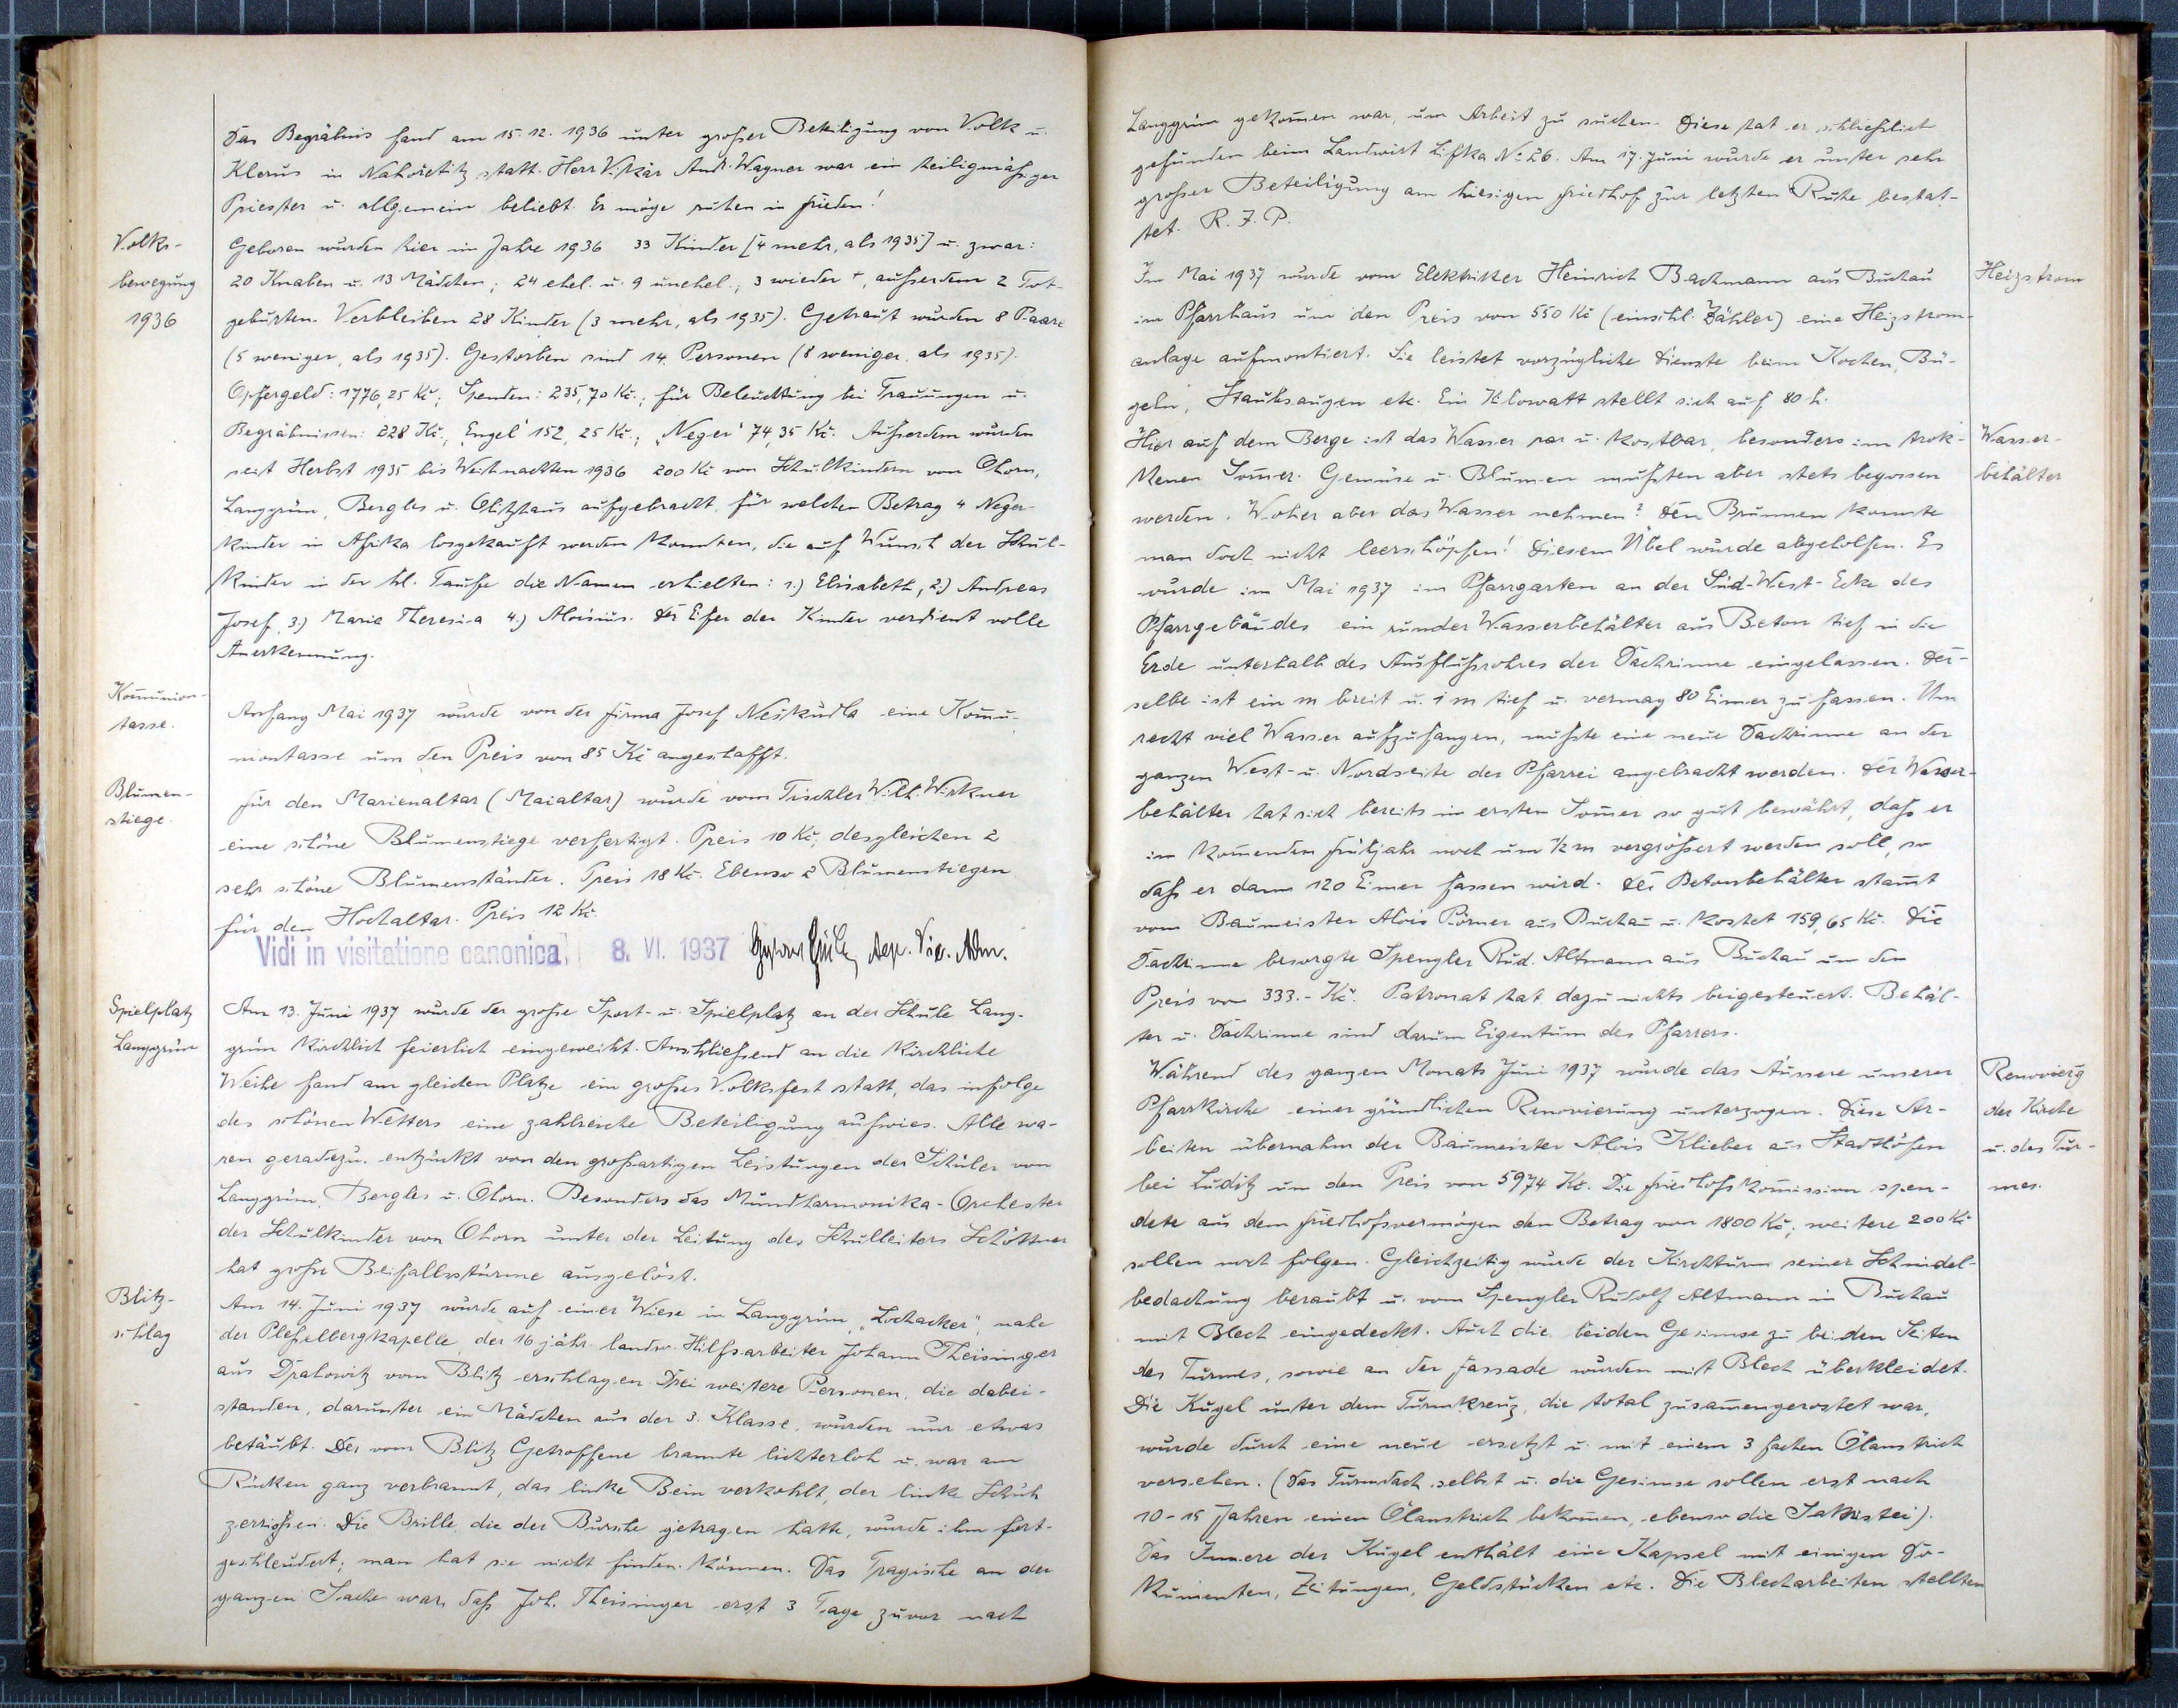 Das Begräbnis fand am 15.12.1936 unter großer Beteiligung von Volk u.
Klerus in Nahořetitz statt. Herr Vikár Andr. Wagner war ein heiligmäßiger
Priester u. allgemein beliebt. Er möge ruhen in Frieden!
Volks-
bewegung
1936
Geboren wurden hier im Jahre 1936 33 Kinder [4 mehr, als 1935] u. zwar:
20 Knaben u. 13 Mädchen; 24 ehel. u. 9 unehel., 3 wieder +, außerdem 2 Tot-
geburten. Verbleiben 28 Kinder (3 mehr, als 1935). Getraut wurden 8 Paare
(5 weniger, als 1935). Gestorben sind 14 Personen (8 weniger, als 1935).
Opfergeld: 1776,25 Kč; Spenden: 235,70 Kč.; für Beleuchtung bei Trauungen u.
Begräbnissen: 228 Kč., "Engel" 152,25 Kč.; "Neger" 74,35 Kč. Außerdem wurden
seit Herbst 1935 bis Weihnachten 1936 200 Kč von Schulkindern von Ohorn,
Langgrün, Bergles u. Olitzhaus aufgebracht, für welchen Betrag 4 Neger-
kinder in Afrika losgekauft werden konnten, die auf Wunsch der Schul-
kinder in der hl. Taufe die Namen erhielten: 1.) Elisabeth, 2.) Andreas
Josef, 3.) Maria Theresia 4.) Aloisius. Der Eifer der Kinder verdient volle
Anerkennung.
Kom̄union-
tasse.
Anfang Mai 1937 wurde von der Firma Josef Neškudla eine Kom̄u-
niontasse um den Preis von 85 Kč angeschafft.
Blumen-
stiege.
Für den Marienaltar (Maialtar) wurde vom Tischler Wilh. Wirkner
eine schöne Blumenstiege verfertigt. Preis 10 Kč, desgleichen 2
sehr schöne Blumenständer. Preis 18 Kč. Ebenso 2 Blumenstiegen
für den Hochaltar. Preis 12 Kč.
Vidi in visitatione canonica, 8. VI. 1937 Vic. Adm.
Spielplatz
Langgrün
Am 13. Juni 1937 wurde der große Sport- u. Spielplatz an der Schule Lang-
grün kirchlich feierlich eingeweiht. Anschließend an die kirchliche
Weihe fand am gleichen Platze ein großes Volksfest statt, das infolge
des schönen Wetters eine zahlreiche Beteiligung aufwies. Alle wa-
ren geradezu entzückt von den großartigen Leistungen der Schüler von
Langgrün, Bergles u. Ohorn. Besonders das Mundharmonika-Orchester
der Schulkinder von Ohorn unter der Leitung des Schulleiters Schöttner
hat große Beifallsstürme ausgelöst.
Blitz-
schlag
Am 14. Juni 1937 wurde auf einer Wiese in Langgrün, "Lochacker", nahe
der Pleßelbergkapelle, der 16 jähr. landw. Hilfsarbeiter Johann Theisinger
aus Drahowitz vom Blitz erschlagen. Drei weitere Personen, die dabei-
standen, darunter ein Mädchen aus der 3. Klasse, wurden nur etwas
betäubt. Der vom Blitz Getroffene brannte lichterloh u. war am
Rücken ganz verbrannt, das linke Bein verkohlt, der linke Schuh
zerrissen. Die Brille, die der Bursche getragen hatte, wurde ihm fort-
geschleudert; man hat sie nicht finden können. Das Tragische an der
ganzen Sache war, daß Joh. Theisinger erst 3 Tage zuvor nach
Langgrün gekom̄en war, um Arbeit zu suchen. Diese hat er schließlich
gefunden beim Landwirt Lifka No 26. Am 17. Juni wurde er unter sehr
großer Beteiligung am hiesigen Friedhof zur letzten Ruhe bestat-
tet. R. I. P.
Im Mai 1937 wurde vom Elektriker Heinrich Bachmann aus Buchau
im Pfarrhaus um den Preis von 550 Kč (einschl. Zähler) eine Heizstrom-
anlage aufmontiert. Sie leistet vorzügliche Dienste beim Kochen, Bü-
geln, Staubsaugen etc. Ein Kilowatt stellt sich auf 80 h.
Heizstrom
Hier auf dem Berge ist das Wasser rar u. kostbar, besonders im trok-
kenen Som̄er. Gemüse u. Blumen mußten aber stets begossen
werden. Woher aber das Wasser nehmen? Den Brunnen konnte
man doch nicht leerschöpfen! Diesem Übel wurde abgeholfen. Es
wurde im Mai 1937 im Pfarrgarten an der Süd-West-Ecke des
Pfarrgebäudes ein runder Wasserbehälter aus Beton tief in die
Erde unterhalb des Ausflußrohres der Dachrinne eingelassen. Der-
selbe ist ein m breit u. 1 m tief u. vermag 80 Eimer zu fassen. Um
recht viel Wasser aufzufangen, mußte eine neue Dachrinne an der
ganzen West- u. Nordseite der Pfarrei angebracht werden. Der Wasser-
behälter hat sich bereits im ersten Som̄er so gut bewährt, daß er
im kom̄enden Frühjahr noch um ½ m vergrößert werden soll, so
daß er dann 120 Eimer fassen wird. Der Betonbehälter stam̄t
vom Baumeister Alois Pörner aus Buchau u. kostet 159,65 Kč. Die
Dachrinne besorgte Spengler Rud. Altmann aus Buchau um den
Preis von 333.- Kč. Patronat hat dazu nichts beigesteuert. Behäl-
ter u. Dachrinne sind darum Eigentum des Pfarrers.
Wasser-
behälter
Während des ganzen Monats Juni 1937 wurde das Äussere unserer
Pfarrkirche einer gründlichen Renovierung unterzogen. Diese Ar-
beiten übernahm der Baumeister Alois Klieber aus Stadthöfen
bei Luditz um den Preis von 5974 Kč. Die Friedhofskom̄ission spen-
dete aus dem Friedhofsvermögen den Betrag von 1800 Kč; weitere 200 Kč
sollen noch folgen. Gleichzeitig wurde der Kirchturm seiner Schindel-
bedachung beraubt u. vom Spengler Rudolf Altmann in Buchau
mit Blech eingedeckt. Auch die beiden Gesimse zu beiden Seiten
des Turmes, sowie an der Fassade wurden mit Blech überkleidet.
Die Kugel unter dem Turmkreuz, die total zusam̄engerostet war,
wurde durch eine neue ersetzt u. mit einem 3 fachen Ölanstrich
versehen. (Das Turmdach selbst u. die Gesimse sollen erst nach
10-15 Jahren einen Ölanstrich bekom̄en, ebenso die Sakristei).
Das Innere der Kugel enthält eine Kapsel mit einigen Do-
kumenten, Zeitungen, Geldstücken etc. Die Blecharbeiten stellten
Renovierg
der Kirche
u. des Tur-
mes.